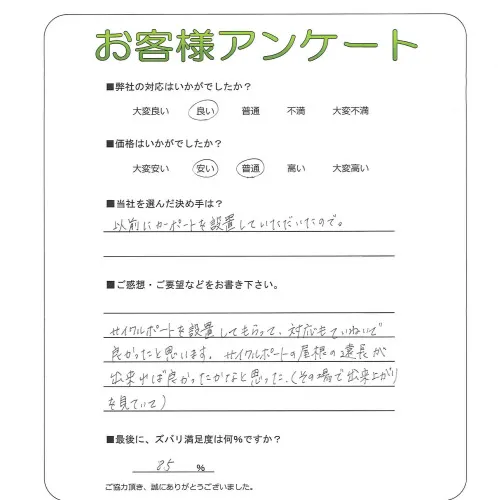 お客様アンケート
■弊社の対応はいかがでしたか？
大変良い 良い 普通 不満 大変不満
■価格はいかがでしたか？
大変安い 安い 普通 高い 大変高い
■当社を選んだ決め手は？
以前にカーポートを設置していただいたので。
■ご感想・ご要望などをお書き下さい。
サイクルポートを設置してもらって、対応もていねいで
良かったと思います。サイクルポートの屋根の延長が
出来れば良かったかなと思った。（その場で出来上がり
を見ていて）
■最後に、ズバリ満足度は何%ですか？
85 %
ご協力頂き、誠にありがとうございました。